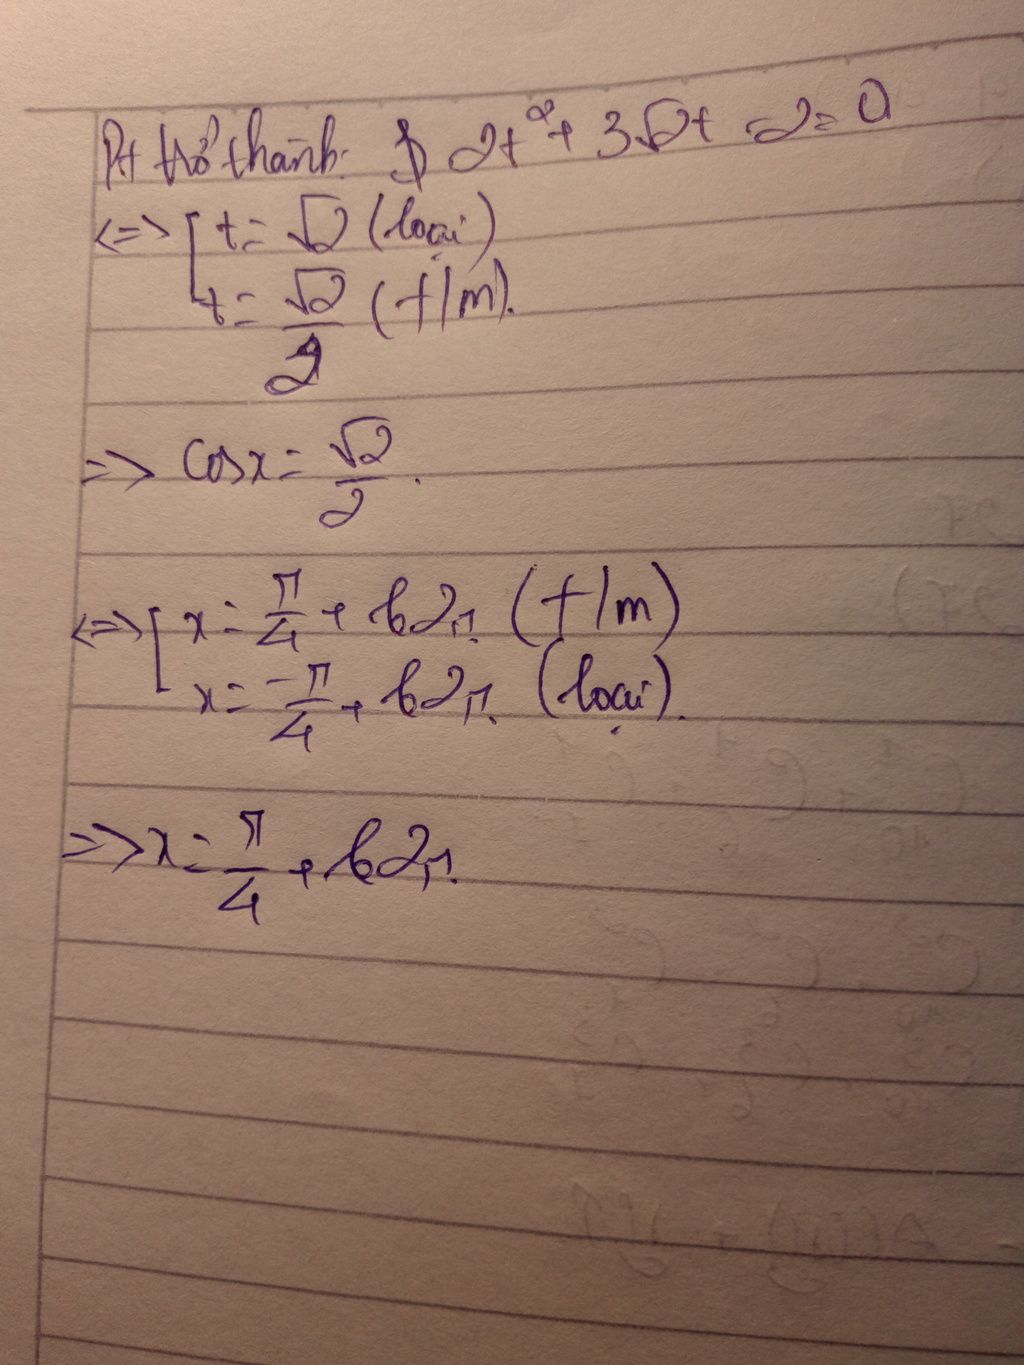 Pt trở thành: 2t² + 3√2t - 2 = 0
<=> [ t = √2 (loại)
t = √2/2 (t/m).
=> cosx = √2/2.
<=> [ x = π/4 + k2π (t/m)
x = -π/4 + k2π (loại).
=> x = π/4 + k2π.